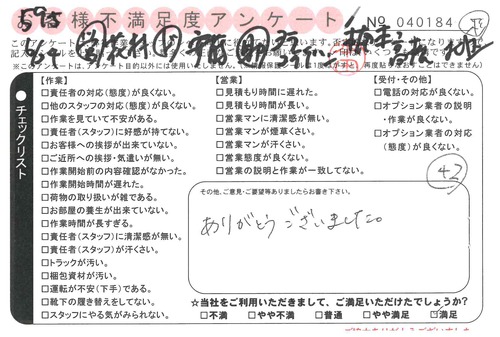 様不満足度アンケート No 040184
※このアンケートは、アンケート目的以外には使用いたしません。
チェックリスト
【作業】
□責任者の対応(態度)が良くない。
□他のスタッフの対応(態度)が良くない。
□作業を見ていて不安がある。
□責任者(スタッフ)に好感が持てない。
□お客様への挨拶が出来ていない。
□ご近所への挨拶・気遣いが無い。
□作業開始前の内容確認がなかった。
□作業開始時間が遅れた。
□荷物の取り扱いが雑である。
□お部屋の養生が出来ていない。
□作業時間が長すぎる。
□責任者(スタッフ)に清潔感が無い。
□責任者(スタッフ)が汗くさい。
□トラックが汚い。
□梱包資材が汚い。
□運転が不安(下手)である。
□靴下の履き替えをしてない。
□スタッフにやる気がみられない。
【営業】
□見積もり時間に遅れた。
□見積もり時間が長い。
□営業マンに清潔感が無い。
□営業マンが煙草くさい。
□営業マンが汗くさい。
□営業態度が良くない。
□営業の説明と作業が一致してない。
【受付・その他】
□電話の対応が良くない。
□オプション業者の説明
・作業が良くない。
□オプション業者の対応
(態度)が良くない。
42
その他、ご意見・ご要望等ありましたらお書き下さい。
ありがとうございました。
☆当社をご利用いただきまして、ご満足いただけたでしょうか?
□不満 □やや不満 □普通 □やや満足 ☑満足